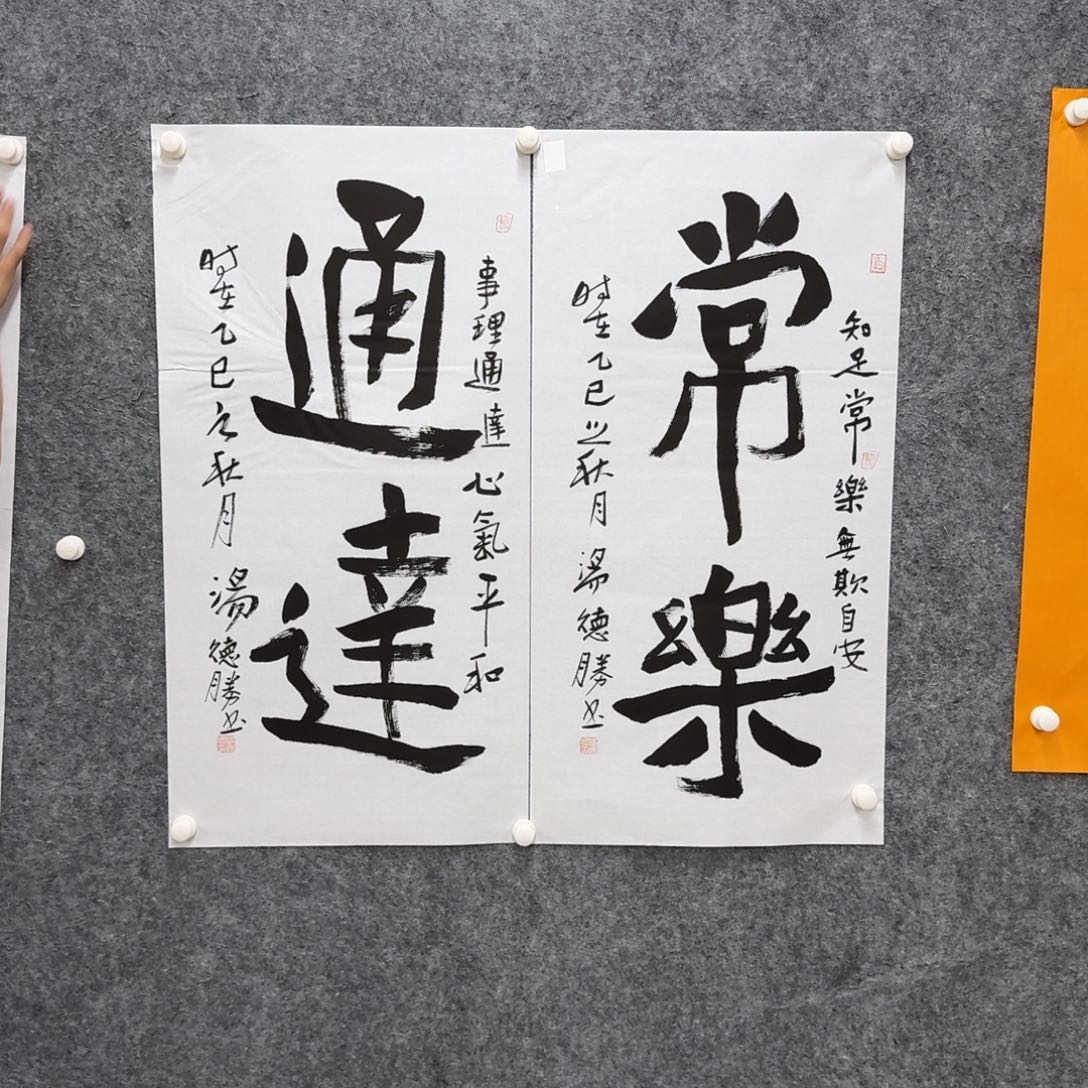 常樂
知足常樂無欺自安
时在乙巳之秋月 湯德勝书
通達
事理通達心氣平和
时在乙巳之秋月 湯德勝书